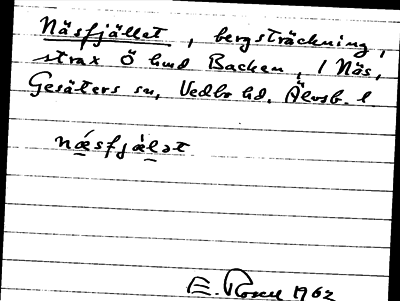 Näsfjället, bergsträckning,
strax Ö hmd Backen, 1 Näs,
Gesäters sn, Vedbo hd, Älvsb. l
næ´sfjàlət
E. Rosell 1962